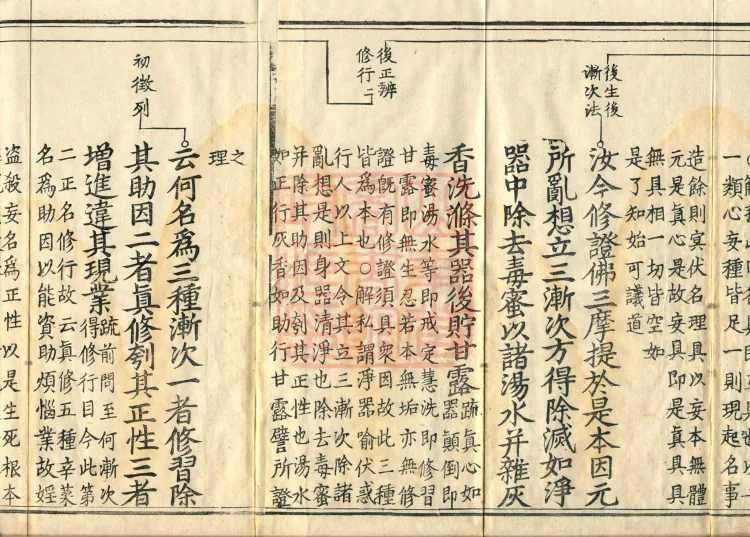 一類心妄種皆足一則現起名事
造餘則冥伏名理具以妄本無體
元是眞心是故妄具即是眞具具
無具相一切皆空如
是了知始可議道
後生後
漸次法
汝今修證佛三摩提於是本因元
所亂想立三漸次方得除滅如淨
器中除去毒蜜以諸湯水并雜灰
香洗滌其器後貯甘露
疏眞心如
器顛倒即
毒蜜湯水等即戒定慧洗即修習
甘露即無生忍若本無垢亦無修
後正辨
修行二
證旣有修證須具衆因故此三種
皆爲本也〇解私謂淨器喻伏惑
行人以上文令其立三漸次除諸
亂想是則身器清淨也除去毒蜜
并除其助因及刳其正性也湯水
如正行灰香如助行甘露譬所證
之
理
云何名爲三種漸次一者修習除
初徵列
其助因二者眞修刳其正性三者
增進違其現業
疏前問至何漸次
得修行目今此第
二正名修行故云眞修五種辛菜
名爲助因以能資助煩惱業故婬
盜殺妄名爲正性以是生死根本